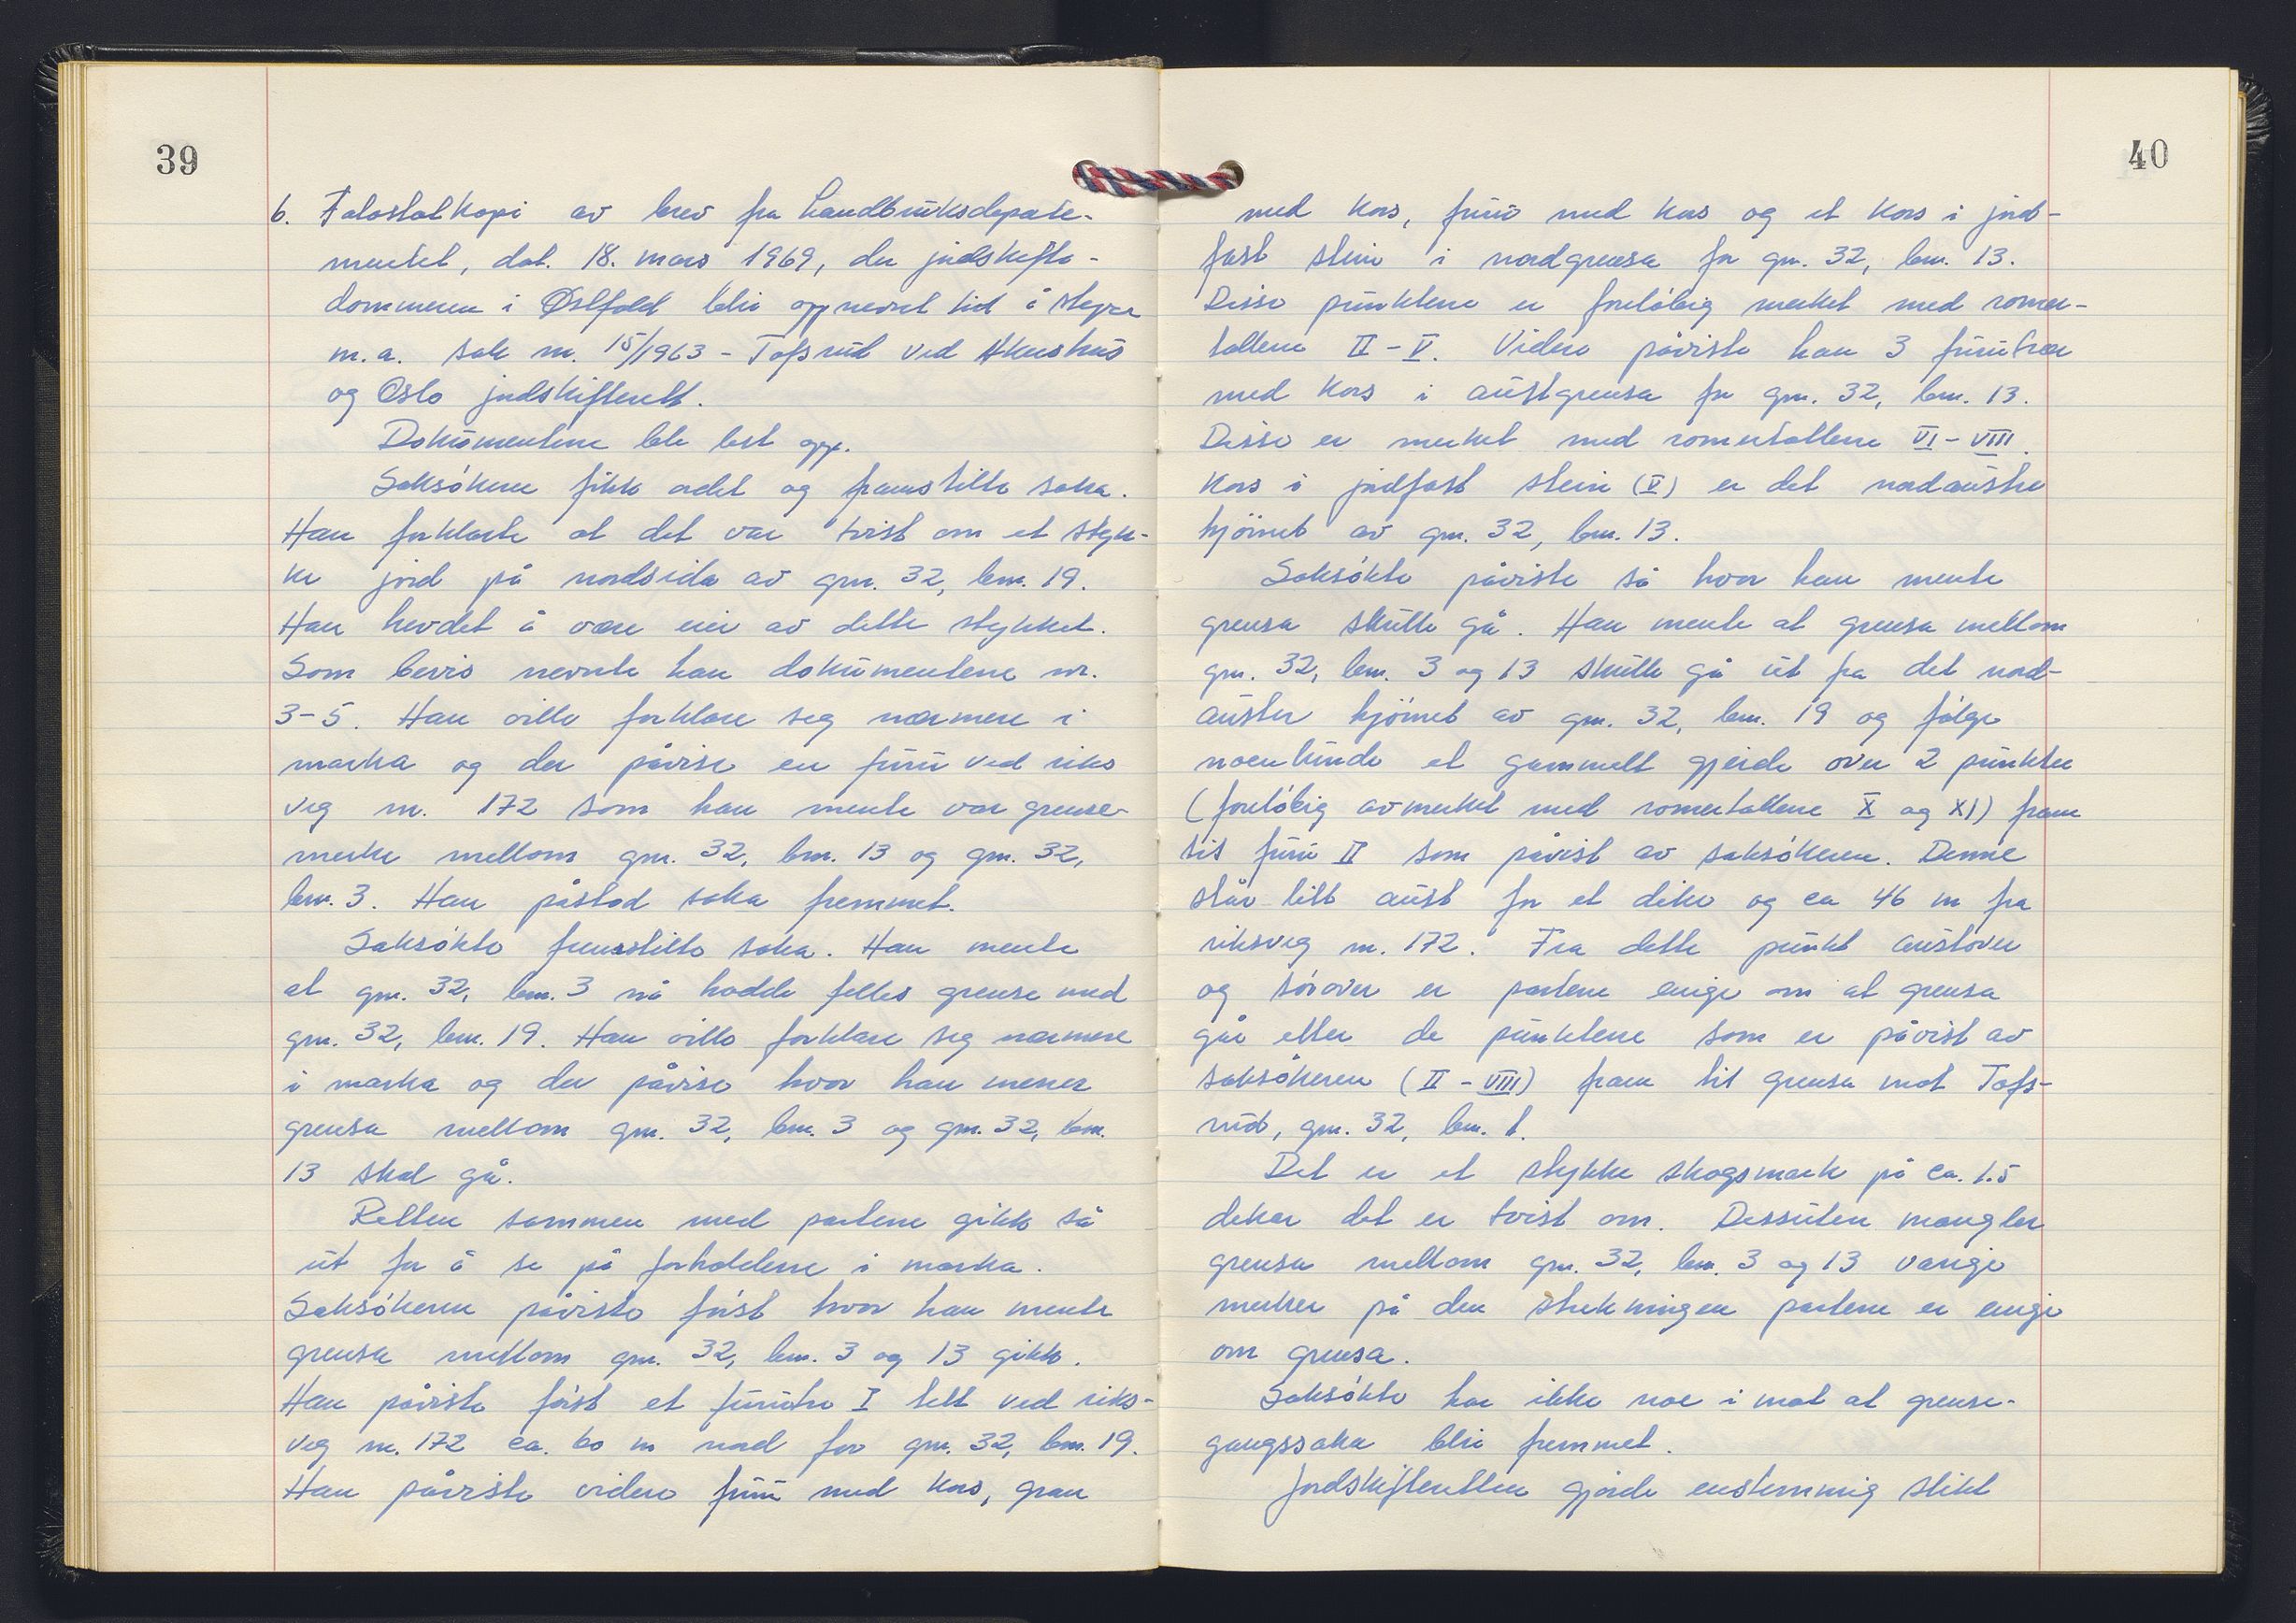 39
6. Fotostatkopi av brev fra Landbruksdeparte-
mentet, dat. 18. mars 1969, der jordskifte-
dommeren i Østfold blir oppnevnt til å styre
m.a. sak nr. 15/1963 - Tofsrud ved Akershus
og Oslo jordskifterett.
Dokumentene ble lest opp.
Saksökeren fikk ordet og framstilte saka.
Han forklarte at det var tvist om et styk-
ke jord på nordsida av gnr. 32, bnr. 19.
Han hevdet å være eier av dette stykket.
Som bevis nevnte han dokumentene nr.
3-5. Han ville forklare seg nærmere i
marka og der påvise en furu ved riks
veg nr. 172 som han mente var grense-
merke mellom gnr. 32, bnr. 13 og gnr. 32,
bnr. 3. Han påstod saka fremmet.
Saksökte framstilte saka. Han mente
at gnr. 32, bnr. 3 nå hadde felles grense med
gnr. 32, bnr. 19. Han ville forklare seg nærmere
i marka og der påvise hvor han mener
grensa mellom gnr. 32, bnr. 3 og gnr. 32, bnr.
13 skal gå.
Retten sammen med partene gikk så
ut for å se på forholdene i marka.
Saksökeren påviste först hvor han mente
grensa mellom gnr. 32, bnr. 3 og 13 gikk.
Han påviste först et furutre I tett ved riks-
veg nr. 172 ca. 60 m nord for gnr. 32, bnr. 19.
Han påviste videre furu med kors, gran
40
med kors, furu med kors og et kors i jord-
fast stein i nordgrensa for gnr. 32, bnr. 13.
Disse punktene er forelöbig merket med romer-
tallene II - V. Videre påviste han 3 furutrær
med kors i austgrensa for gnr. 32, bnr. 13.
Disse er merket med romertallene VI - VIII.
Kors i jordfast stein (V) er det nordaustre
hjörnet av gnr. 32, bnr. 13.
Saksökte påviste så hvor han mente
grensa skulle gå. Han mente at grensa mellom
gnr. 32, bnr. 3 og 13 skulle gå ut fra det nord-
austre hjörnet av gnr. 32, bnr. 19 og fölge
noenlunde et gammelt gjerde over 2 punkter
(forelöbig avmerket med romertallene X og XI) fram
til furu II som påvist av saksökeren. Denne
står litt aust for et dike og ca 46 m fra
riksveg nr. 172. Fra dette punkt austover
og sörover er partene enige om at grensa
går etter de punktene som er påvist av
saksökeren (II - VIII) fram til grensa mot Tofs-
rud, gnr. 32, bnr. 1.
Det er et stykke skogsmark på ca. 1.5
dekar det er tvist om. Dessuten mangler
grensa mellom gnr. 32, bnr. 3 og 13 varige
merker på den strekningen partene er enige
om grensa.
Saksökte har ikke noe i mot at grense-
gangssaka blir fremmet.
Jordskifteretten gjorde enstemmig slikt